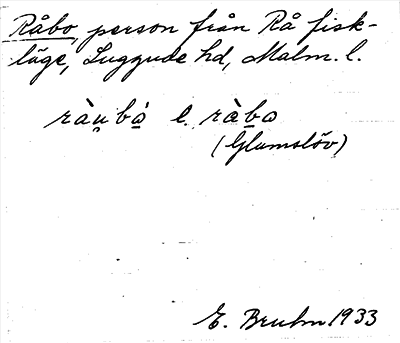 Råbo, person från Rå fisk-
läge, Luggude hd, Malm. l.
ràu̯bó̱ l. rà̱bo
(Glumslöv)
E. Bruhn 1933